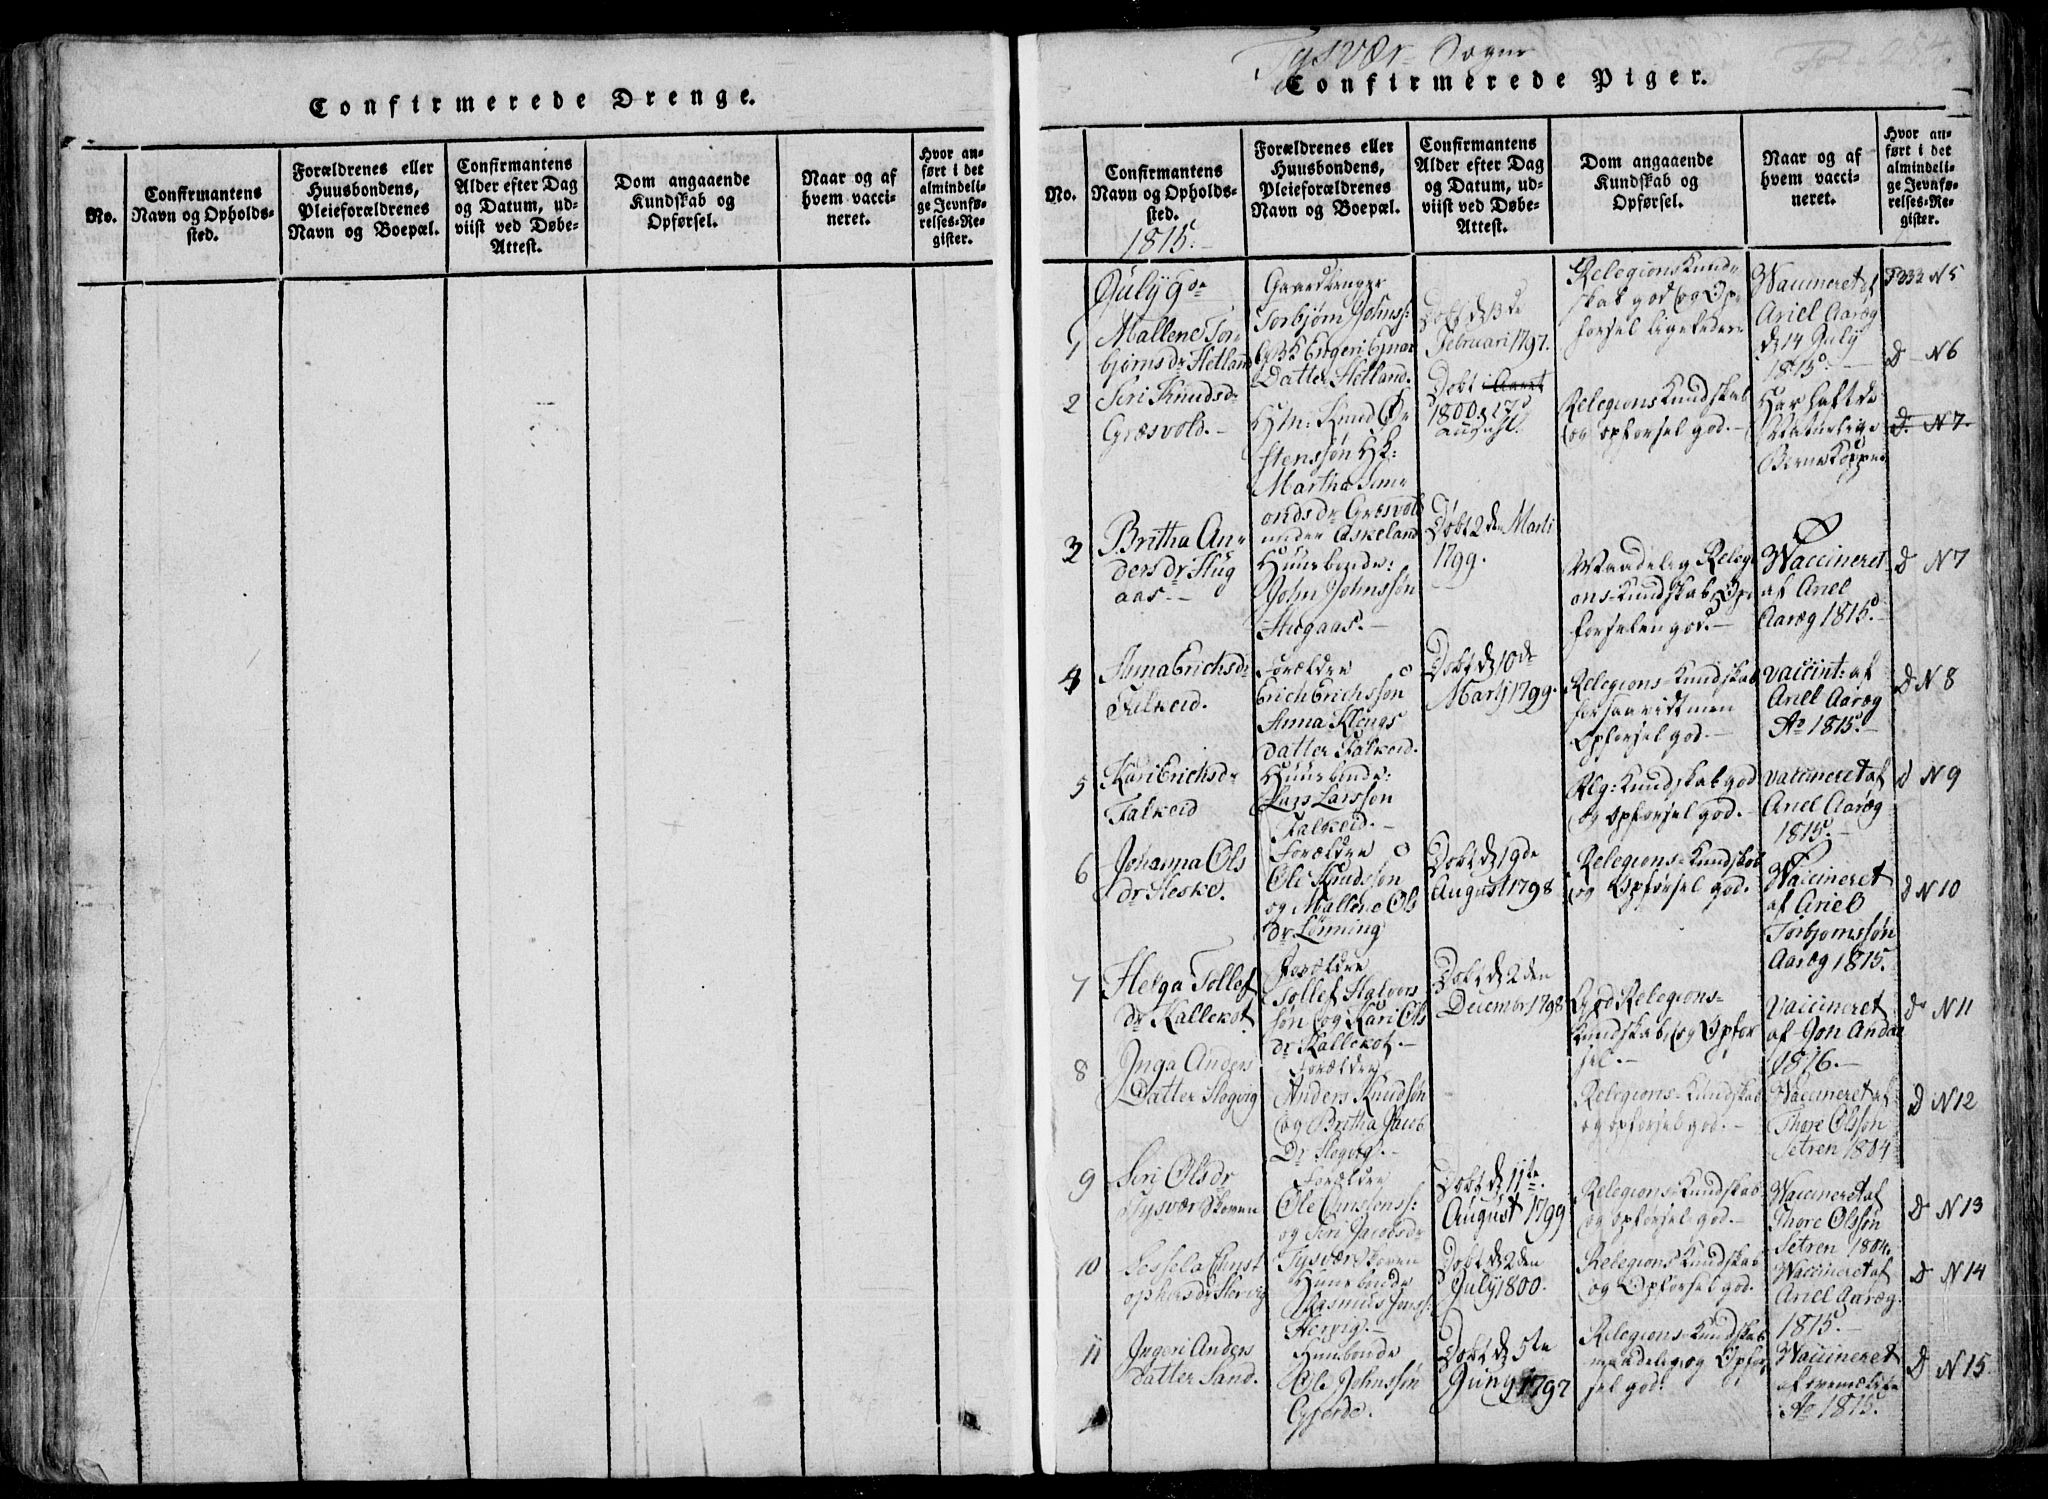 Confirmerede Drenge.
No.
Confirmantens
Navn og Opholds-
sted.
Forældrenes eller
Huusbondens,
Pleieforældrenes
Navn og Boepæl.
Confirmantens
Alder efter Dag
og Datum, ud-
viist ved Døbe-
Attest.
Dom angaaende
Kundskab og
Opførsel.
Naar og af
hvem vacci-
neret.
Hvor an-
ført i det
almindeli-
ge Jevnfø-
relses-Re-
gister.
Tysvær Sogn
Confirmerede Piger.
No.
Confirmantens
Navn og Opholds-
sted.
1815.
Forældrenes eller
Huusbondens,
Pleieforældrenes
Navn og Boepæl.
Confirmantens
Alder efter Dag
og Datum, ud-
viist ved Døbe-
Attest.
Dom angaaende
Kundskab og
Opførsel.
Naar og af
hvem vacci-
neret.
Hvor an-
ført i det
almindeli-
ge Jevnfø-
relses-Re-
gister.
July 9de
1
Mallene Tor-
bjørnsdr Hetland
Torbjørn Johns:
Datter Hetland.
Døbt d 3de
Februari 1797.
Relegions Kund-
skab god og Op-
førsel ligeledes
Vaccineret af
Ariel Aaræg
d 14 July
1815.
N 5
2
Siri Knudsdr
Græsvold.
Knud
stenssøn HK:
Martha Sim-
ondsdr Græsvold
under Askeland
Døbt
1800 d 17d
August.
Relegions Kundskab
og opførsel god.
Har haft de
Naturlige
Børnekopper
D N 6
D. N 7.
3
Britha An-
dersdr Stug
aas.
Huusbonde:
John Johnssøn
Stugaas.
Døbt 2den Marti
1799.
Maadelig Relegi
ons-Kundskab Op-
førselen god.
Vaccineret
af Ariel
Aaræg 1815.
D N 7
4
Anna Erichsdr
Falkeid.
Forældre
Erich Erichssøn
Anna Klengs
datter Falkeid.
Døbt d 10de
Martj 1799.
Relegions-Kundskab
forsaavidt men
Opførsel god.
vaccint: af
Ariel Aaræg
Ao 1815.
D N 8
5
Kari Erichsdr
Falkeid
Huusbonde:
Lars Larssøn
Falkeid.
Rlg: Kundskab god
og opførsel god.
vaccineret af
Ariel Aaræg
1815.
D N 9
6
Johanna Ols
dr Heske.
Forældre
Ole Knudssøn
og Mallene Ols
dr Lønning
Døbt d 19de
August 1798
Relegions-Kundskab
og Opførsel god.
Vaccineret
af Ariel
Torbjørnssøn
Aaræg 1815.
D N 10
7
Helga Tollef
dr Kallekot.
Forældre
Tollef Halvors
søn og Kari Ols
dr Kallekot.
Døbt d 2den
December 1798
God Relegions-
Kundskab og Opfør
sel.
Vaccineret
af Jon
1816.
D N 11
8
Inga Anders
Datter Slogvig
Forældre
Anders Knudsøn
og Britha Jacob
Dr Slogvig.
Relegions-Kundskab
og opførsel god.
Vaccineret af
Thore Olssøn
Setren 1804
D N 12
9
Siri Olsdr
Tysvær Skoven
Forældre
Ole Christens:
og Siri Jacobsdr
Tysvær Skoven
Døbt d 11te
August 1799
Relegions-Kundskab
og opførsel god.
Vaccineret af
Thore Olssøn
Setren 1804.
D N 13
10
Christ
ophersdr Hervig
Huusbonde
Rasmus Jons:
Hervig.
Døbt d 2den
July 1800.
Relegions Kundskab
og Opførsel god.
Vaccineret af
Ariel Aaræg.
1815.
D N 14
11
Ingeri Anders
datter Sand.
Huusbonde
Ole Johnssøn
Gjerde.
Døbt d 5te
Juny 1797
Relegions-Kundskab
maadelig og Opfør
sel god.
Vaccineret
af ovenmeldte
Ao 1815.
D N 15.